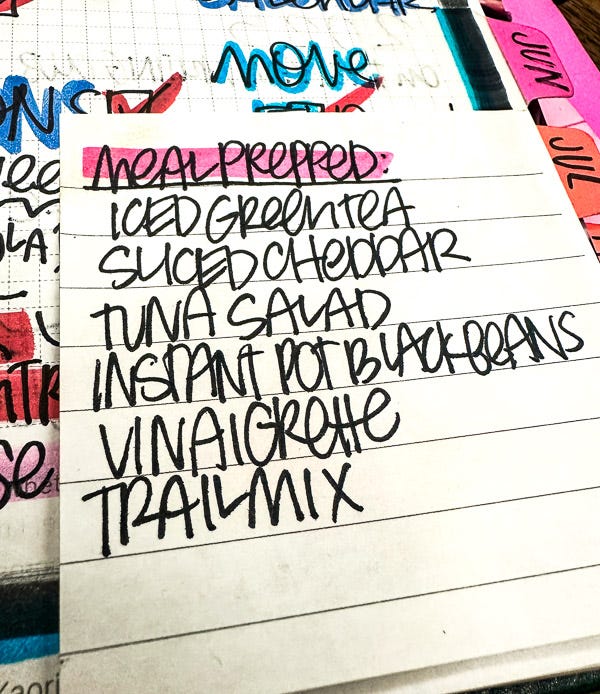 CALENDAR
MOVE
ONS
JUN
JUL
MEAL PREPPED:
ICED GREEN TEA
SLICED CHEDDAR
TUNA SALAD
INSTANT POT BLACK BEANS
VINAIGRETTE
TRAIL MIX
Kaori